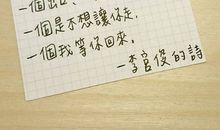 一個是不想讓你走，
一個我等你回來。
—李宮俊的詩